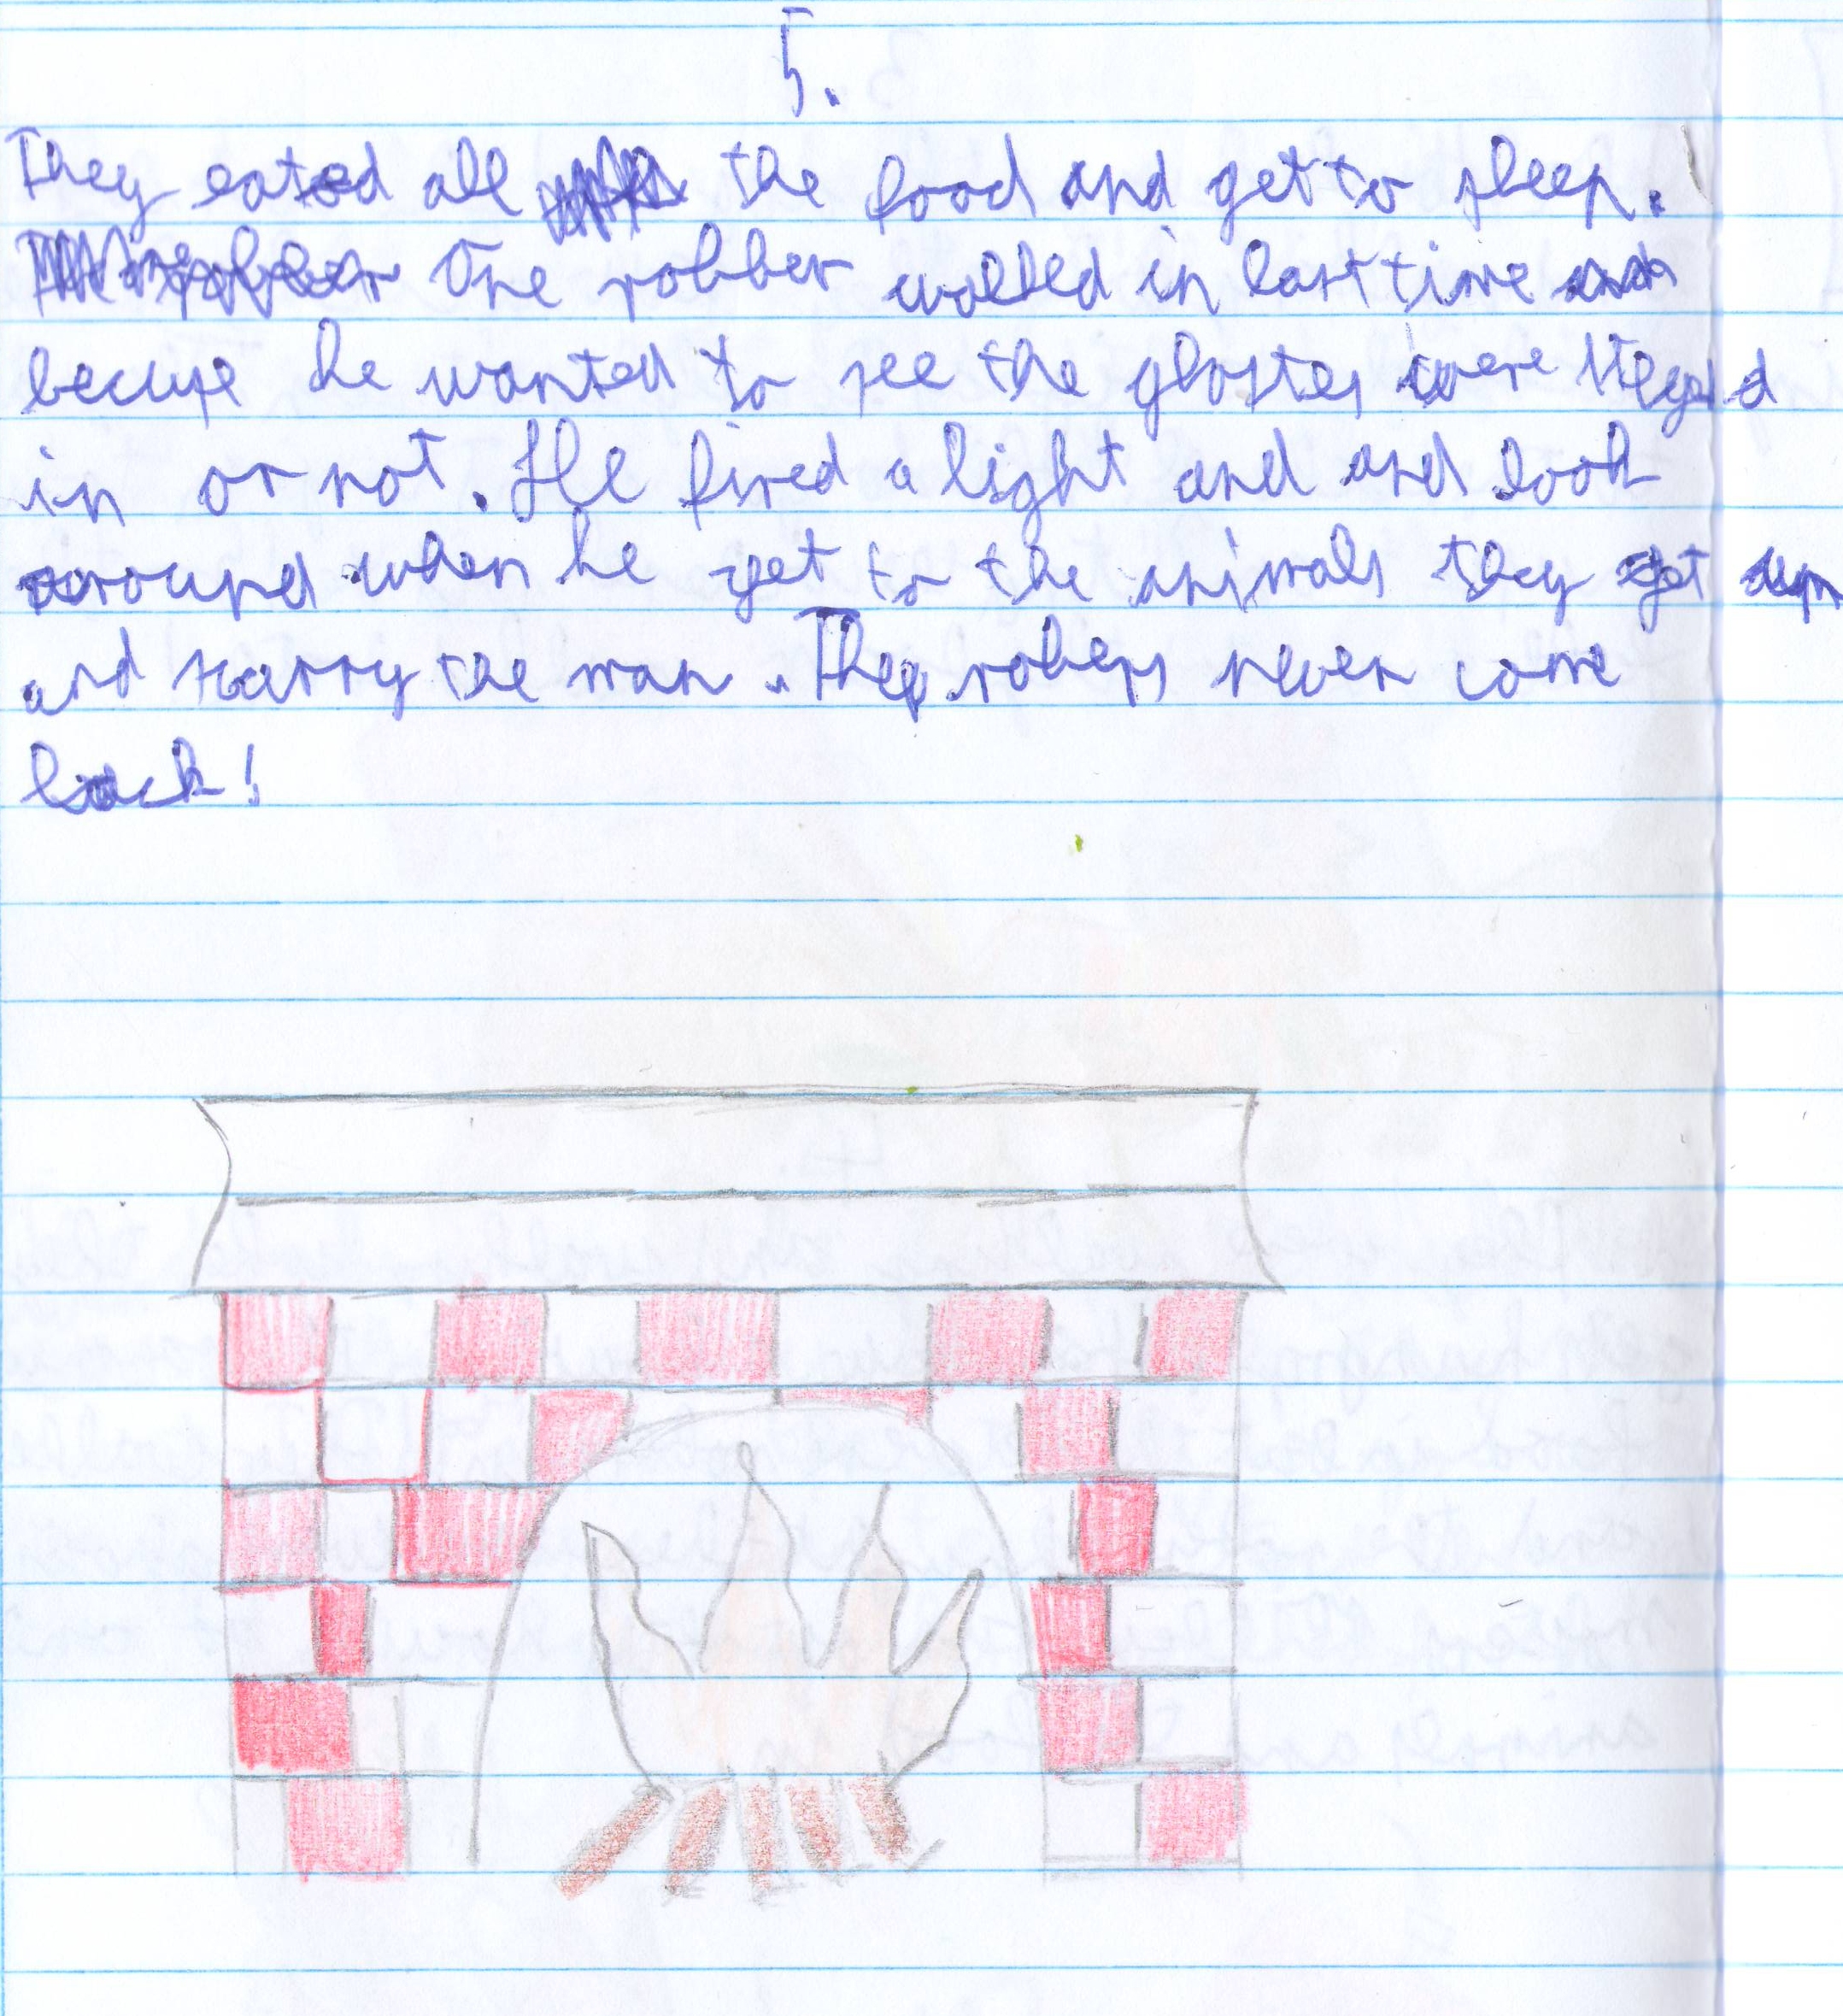 5.
They eated all the food and get to sleep.
One robber walked in last time
becuse he wanted to see the ghostes were steyed
in or not. He fired a light and and look
around when he get to the animals they get
and scarry the man. They robers never come
back!